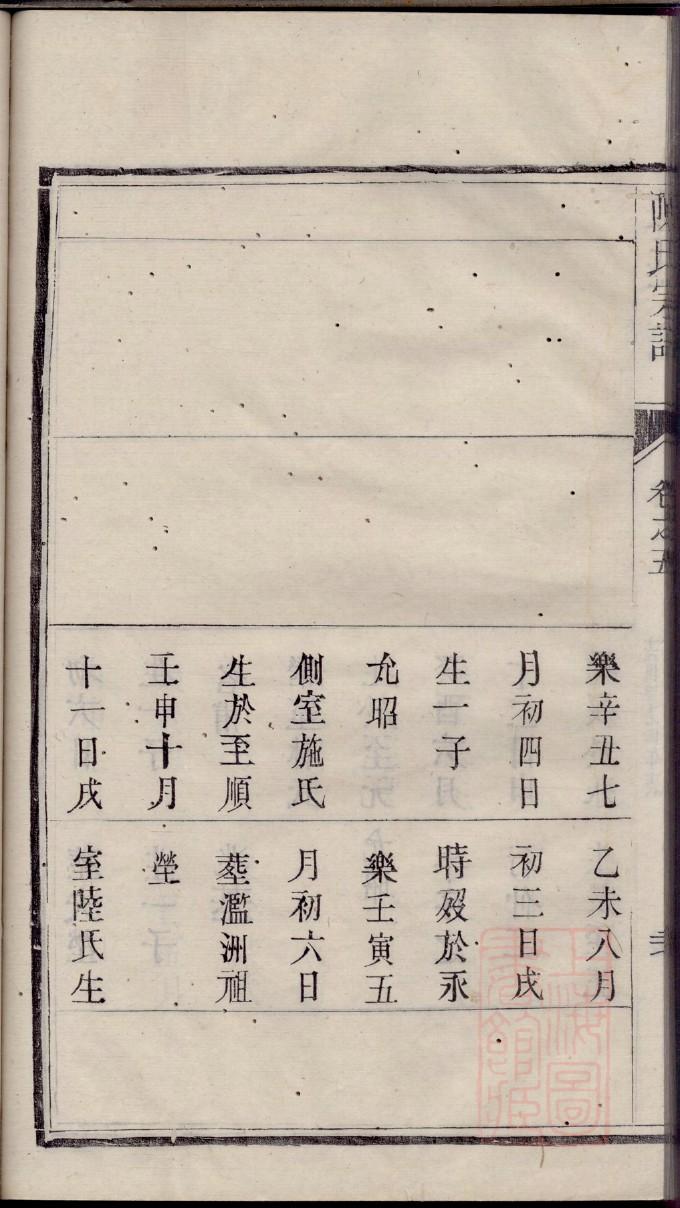 陳氏宗譜
卷之五
弍
樂辛丑七
月初四日
生一子
允昭
側室施氏
生於至順
壬申十月
十一日戌
乙未八月
初三日戌
時殁於永
樂壬寅五
月初六日
塟濫洲祖
塋
室陸氏生
上海圖
書館藏